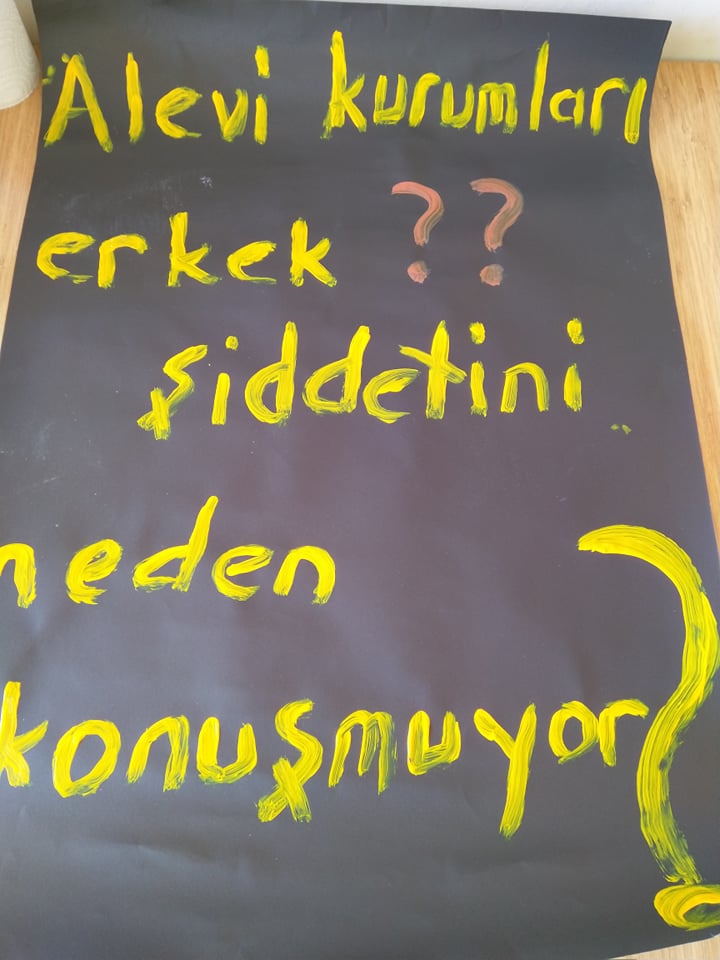 Alevi kurumları
erkek ??
şiddetini
neden
konuşmuyor?